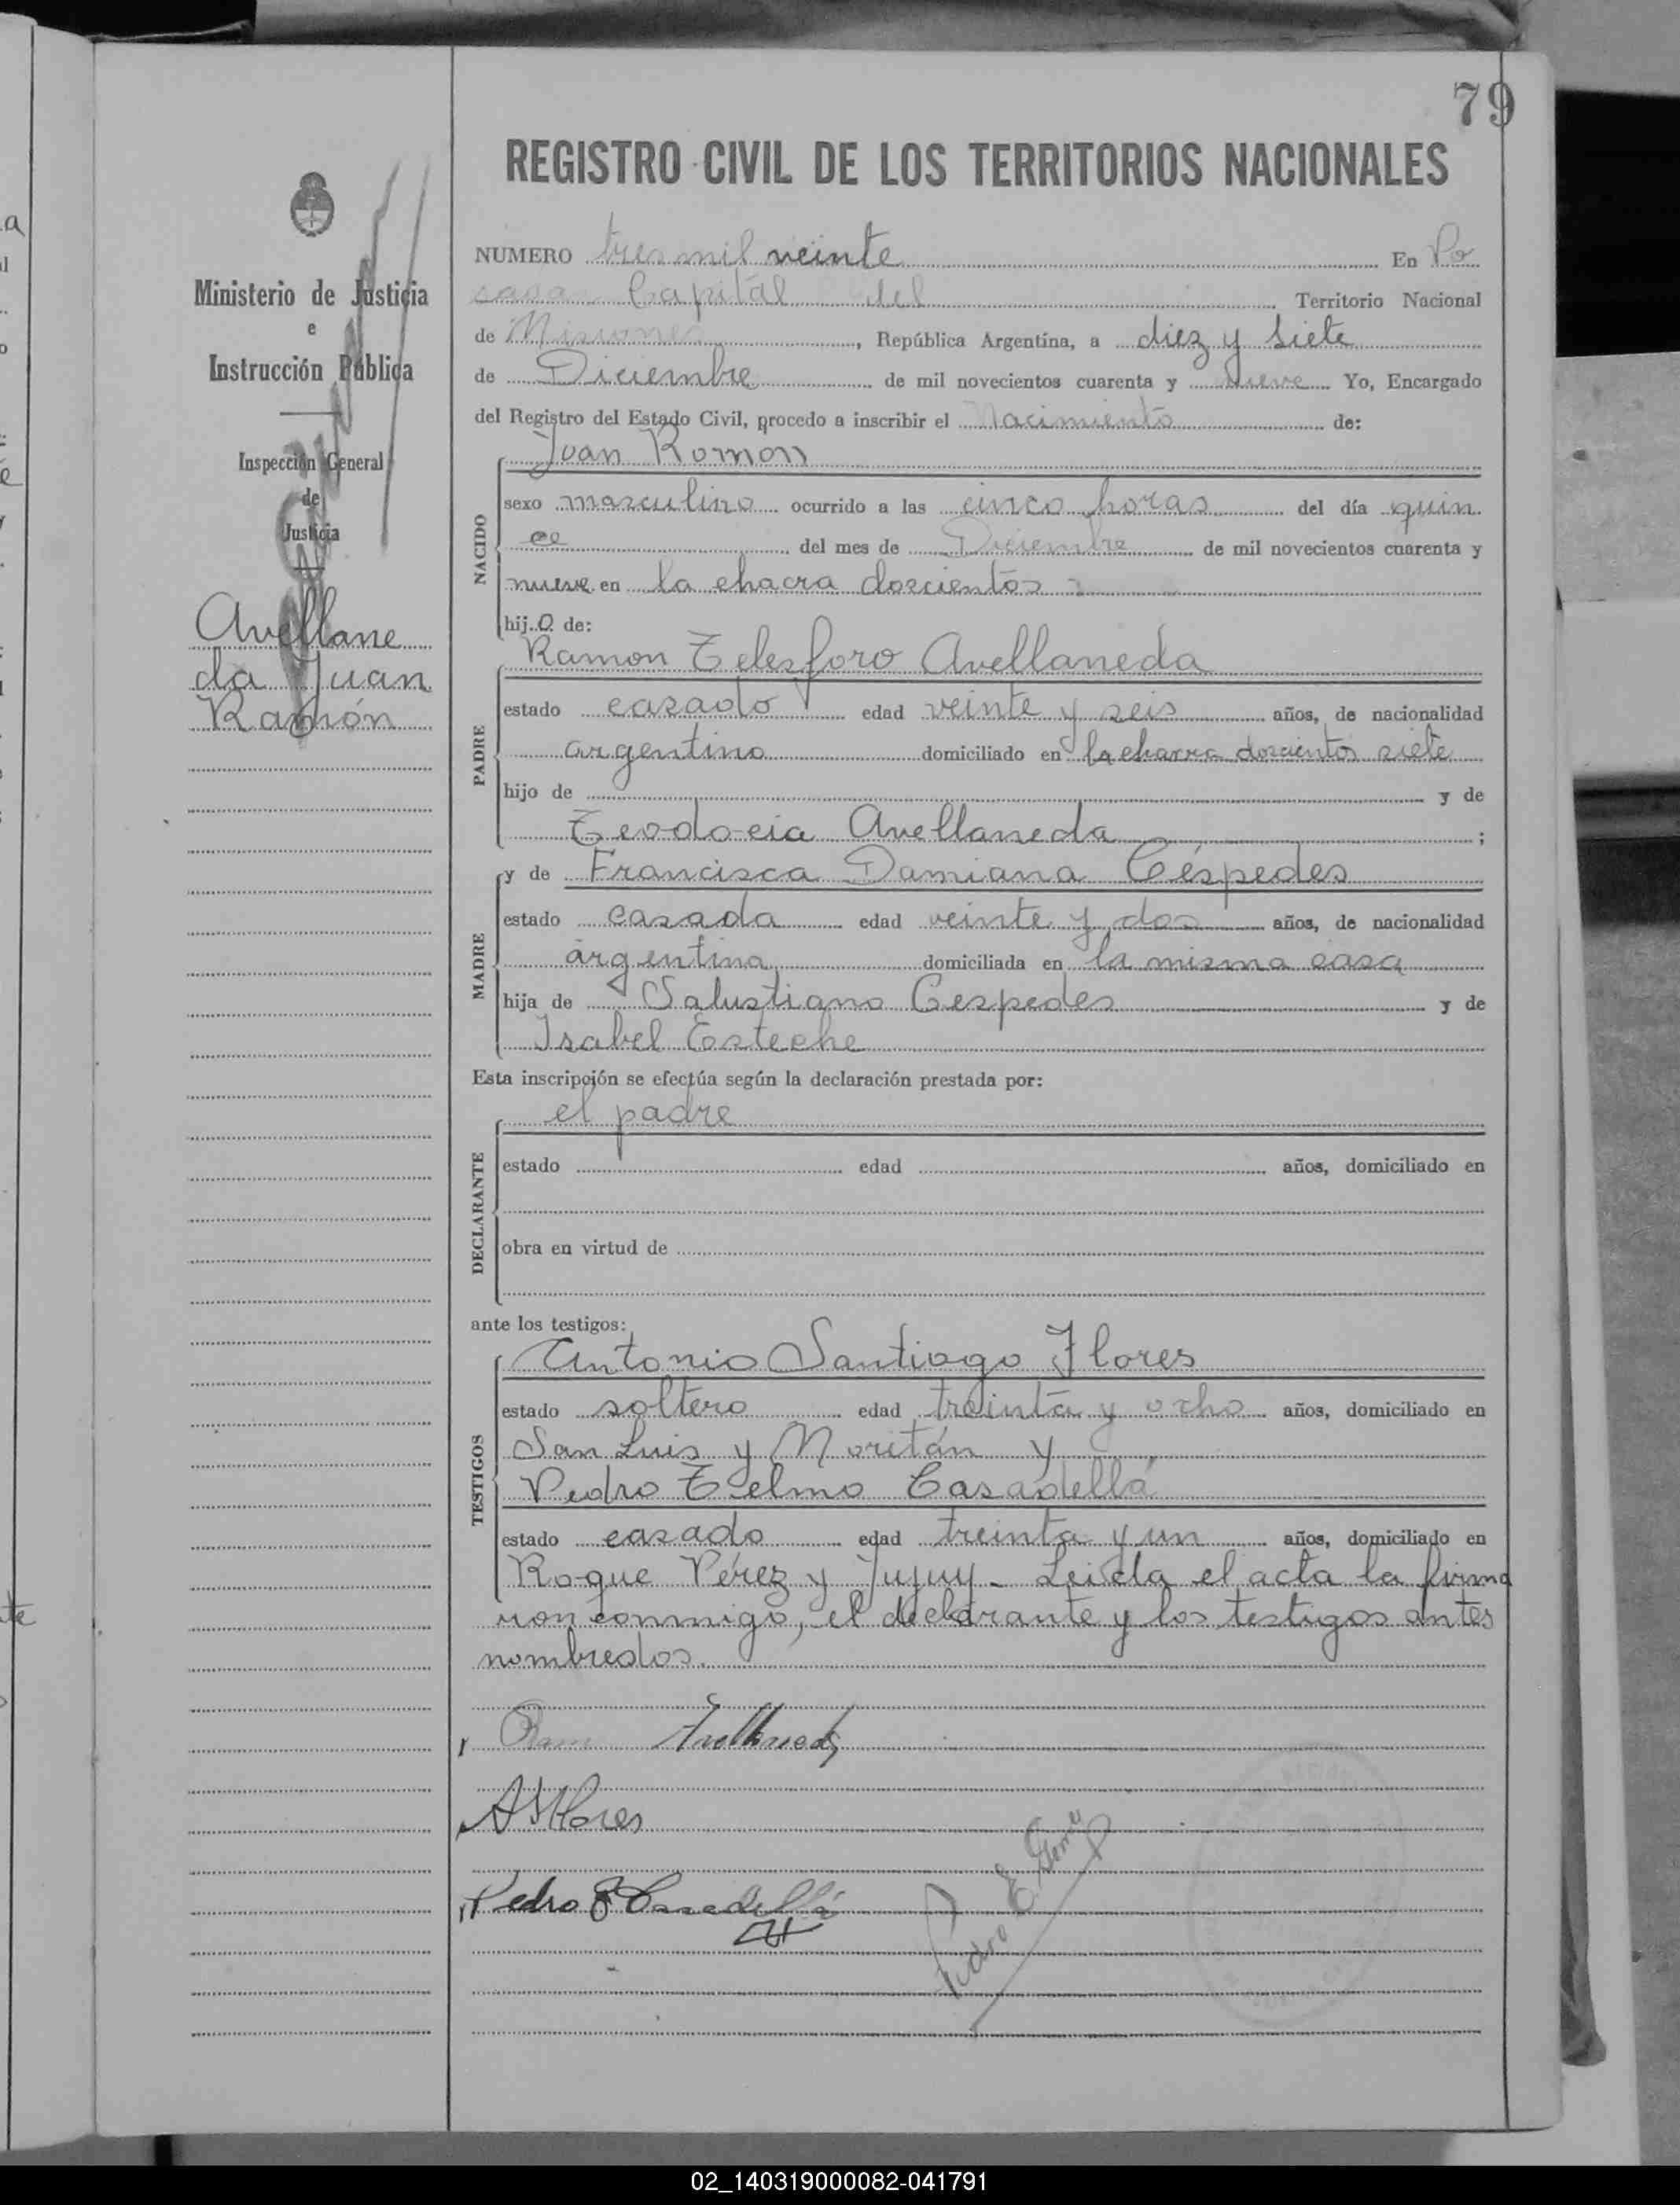 79
REGISTRO CIVIL DE LOS TERRITORIOS NACIONALES
Ministerio de Justicia
e
Instrucción Pública
Inspección General
de
Justicia
Avellane
da Juan
Ramón
NUMERO tres mil veinte En Po
sada Capital del Territorio Nacional
de Misiones, República Argentina, a diez y siete
de Diciembre de mil novecientos cuarenta y nueve Yo, Encargado
del Registro del Estado Civil, procedo a inscribir el Nacimiento de:
NACIDO
Juan Ramon
sexo masculino ocurrido a las cinco horas del día quin
ce del mes de Diciembre de mil novecientos cuarenta y
nueve en la chacra doscientos
hijo de:
PADRE
Ramon Telesforo Avellaneda
estado casado edad veinte y seis años, de nacionalidad
argentino domiciliado en la chacra doscientos siete
hijo de y de
Teodocia Avellaneda ;
MADRE
y de Francisca Damiana Céspedes
estado casada edad veinte y dos años, de nacionalidad
argentina domiciliada en la misma casa
hija de Salustiano Cespedes y de
Isabel Esteche
Esta inscripción se efectúa según la declaración prestada por:
DECLARANTE
el padre
estado edad años, domiciliado en
obra en virtud de
ante los testigos:
TESTIGOS
Antonio Santiago Flores
estado soltero edad treinta y ocho años, domiciliado en
San Luis y Moritán y
Pedro Telmo Casadellá
estado casado edad treinta y un años, domiciliado en
Roque Pérez y Jujuy - Leida el acta la firma
ron conmigo, el declarante y los testigos antes
nombrados.
Ram Avellaneda
A S Flores
Pedro T Casadellá
Pedro E.
02_140319000082-041791